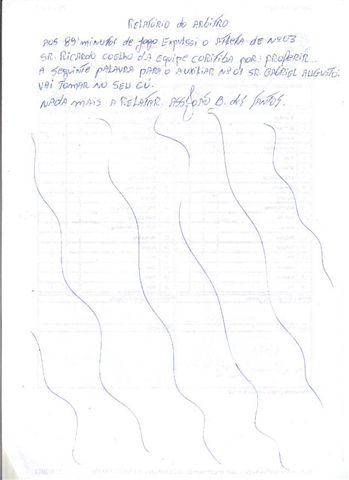 RELATÓRIO do ARBITRO
AOS 89' minutos de jogo Expulsei o Atleta de Nº 03
SR. RICARDO COELHO dA Equipe CORITIBA por: PROFERIR...
A seguinte PALAVRA PARA o AUXILIAR Nº 01 SR. GABRIEL AUGUSTO:
VAI TOMAR NO SEU CÚ.
NADA MAIS A RELATAR. ASS JOÃO B. dos SANTOS.